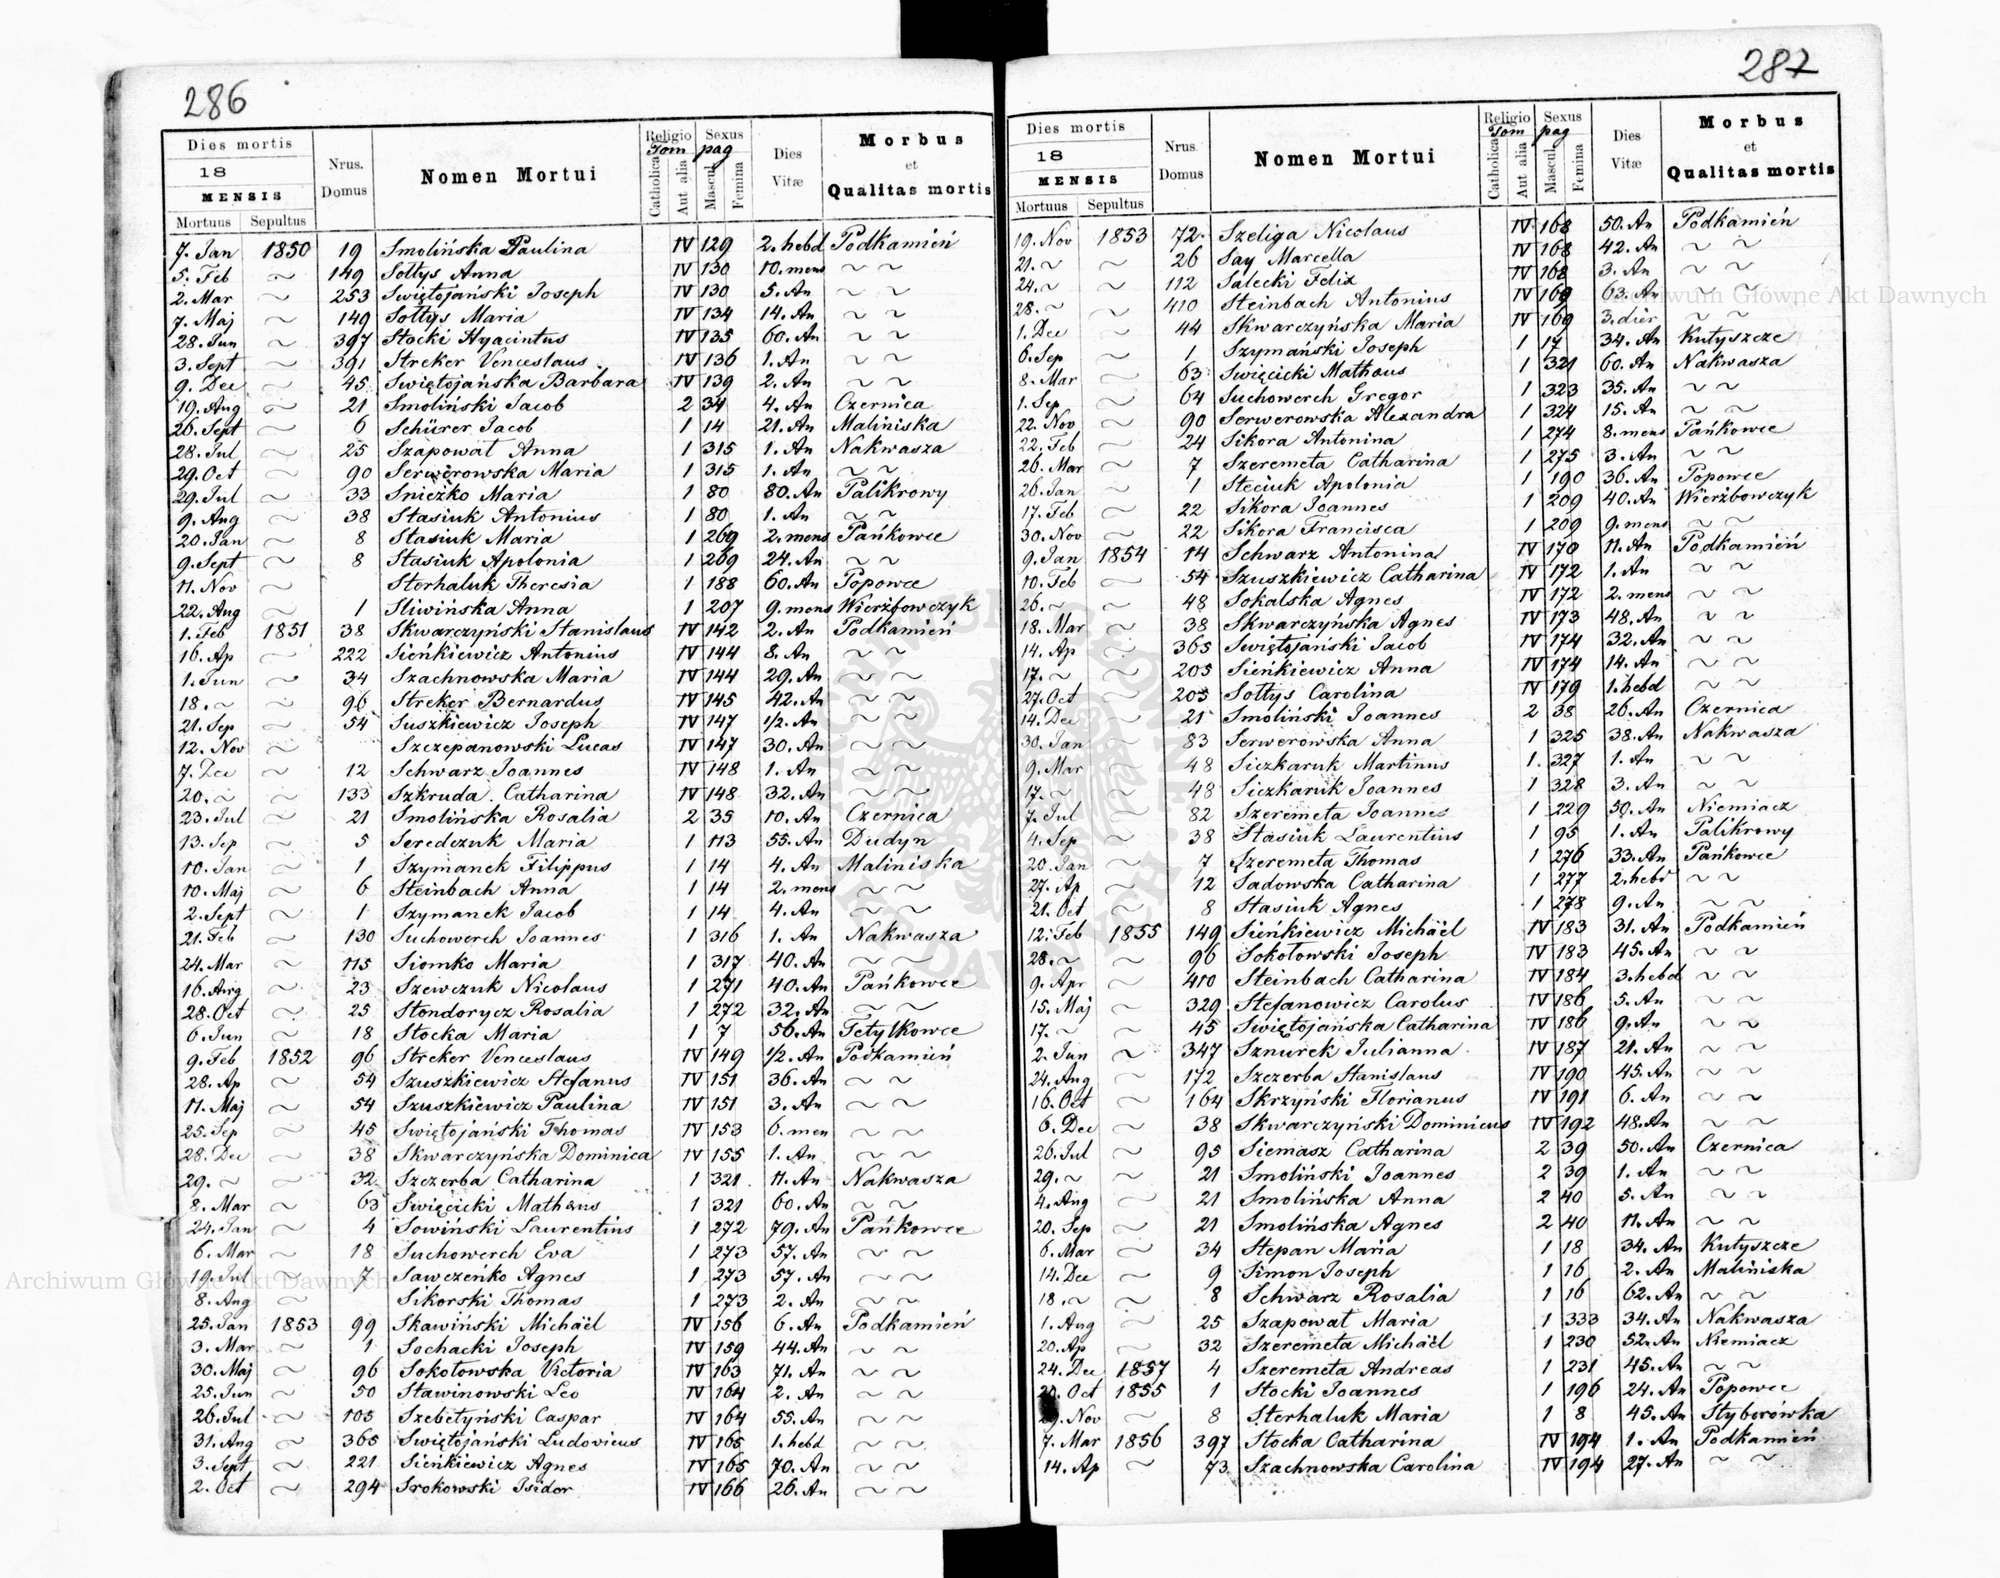 286
Dies mortis
18
MENSIS
Mortuus Sepultus
Nrus. Domus
Nomen Mortui
Religio Tom Catholica Aut alia
Sexus pag Mascul. Femina
Dies Vitæ
Morbus et Qualitas mortis
7. Jan 1850 19 Smolińska Paulina IV 129 2. hebd Podkamień
5. Feb ~ 149 Sołtys Anna IV 130 10. mens ~ ~
2. Mar ~ 253 Swiętojański Joseph IV 130 5. An ~ ~
7. Maj ~ 149 Sołtys Maria IV 134 14. An ~ ~
28. Jun ~ 397 Stocki Hyacintus IV 135 60. An ~ ~
3. Sept ~ 391 Streker Venceslaus IV 136 1. An ~ ~
9. Dec ~ 45 Swiętojańska Barbara IV 139 2. An ~ ~
19. Aug ~ 21 Smoliński Jacob 2 34 4. An Czernica
26. Sept ~ 6 Schürer Jacob 1 14 21. An Maliniska
28. Jul ~ 25 Szapował Anna 1 315 1. An Nakwasza
29. Oct ~ 90 Serwerowska Maria 1 315 1. An ~ ~
29. Jul ~ 33 Snieżko Maria 1 80 80. An Palikrowy
9. Aug ~ 38 Stasiuk Antonius 1 80 1. An ~ ~
20. Jan ~ 8 Stasiuk Maria 1 269 2. mens Pańkowce
9. Sept ~ 8 Stasiuk Apolonia 1 269 24. An ~ ~
11. Nov ~ Sterhaluk Theresia 1 188 60. An Popowce
22. Aug ~ 1 Sliwińska Anna 1 207 9. mens Wierzbowczyk
1. Feb 1851 38 Skwarczyński Stanislaus IV 142 2. An Podkamień
16. Ap ~ 222 Sieńkiewicz Antonius IV 144 8. An ~ ~
1. Jun ~ 34 Szachnowska Maria IV 144 29. An ~ ~
18. ~ ~ 96 Streker Bernardus IV 145 42. An ~ ~
21. Sep ~ 54 Suszkiewicz Joseph IV 147 1/2. An ~ ~
12. Nov ~ Szczepanowski Lucas IV 147 30. An ~ ~
7. Dec ~ 12 Schwarz Joannes IV 148 1. An ~ ~
20. ~ ~ 133 Szkruda Catharina IV 148 32. An ~ ~
23. Jul ~ 21 Smolińska Rosalia 2 35 10. An Czernica
13. Sep ~ 5 Seredczuk Maria 1 113 55. An Dudyn
10. Jan ~ 1 Szymanek Filippus 1 14 4. An Maliniska
10. Maj ~ 6 Steinbach Anna 1 14 2. mens ~ ~
2. Sept ~ 1 Szymanek Jacob 1 14 4. An ~ ~
21. Feb ~ 130 Suchowerch Joannes 1 316 1. An Nakwasza
24. Mar ~ 115 Siomko Maria 1 317 40. An ~ ~
16. Aug ~ 23 Szewczuk Nicolaus 1 271 40. An Pańkowce
28. Oct ~ 25 Stondorycz Rosalia 1 272 32. An ~ ~
6. Jun ~ 18 Stocka Maria 1 7 56. An Tetylkowce
9. Feb 1852 96 Streker Venceslaus IV 149 1/2. An Podkamień
28. Ap ~ 54 Szuszkiewicz Stefanus IV 151 36. An ~ ~
11. Maj ~ 54 Szuszkiewicz Paulina IV 151 3. An ~ ~
25. Sep ~ 45 Swiętojański Thomas IV 153 6. men ~ ~
28. Dec ~ 38 Skwarczyńska Dominica IV 155 1. An ~ ~
29. ~ ~ 32 Szczerba Catharina 1 321 11. An Nakwasza
8. Mar ~ 63 Swięcicki Mathäus 1 321 60. An ~ ~
24. Jan ~ 4 Sowiński Laurentius 1 272 79. An Pańkowce
6. Mar ~ 18 Suchowerch Eva 1 273 57. An ~ ~
19. Jul ~ 7 Sawczeńko Agnes 1 273 57. An ~ ~
8. Aug ~ Sikorski Thomas 1 273 2. An ~ ~
25. Jan 1853 99 Skawiński Michaël IV 156 6. An Podkamień
3. Mar ~ 1 Sochacki Joseph IV 159 44. An ~ ~
30. Maj ~ 96 Sokołowska Victoria IV 163 71. An ~ ~
25. Jun ~ 50 Sławinowski Leo IV 164 2. An ~ ~
26. Jul ~ 105 Szebetyński Caspar IV 164 55. An ~ ~
31. Aug ~ 365 Swiętojański Ludovicus IV 165 1. hebd ~ ~
3. Sept ~ 221 Sieńkiewicz Agnes IV 165 70. An ~ ~
2. Oct ~ 294 Srokowski Isidor IV 166 26. An ~ ~
287
Dies mortis
18
MENSIS
Mortuus Sepultus
Nrus. Domus
Nomen Mortui
Religio Tom Catholica Aut alia
Sexus pag Mascul. Femina
Dies Vitæ
Morbus et Qualitas mortis
19. Nov 1853 72 Szeliga Nicolaus IV 168 50. An Podkamień
21. ~ ~ 26 Say Marcella IV 168 42. An ~ ~
24. ~ ~ 112 Salecki Felix IV 168 3. An ~ ~
28. ~ ~ 410 Steinbach Antonius IV 169 63. An ~ ~
1. Dec ~ 44 Skwarczyńska Maria IV 169 3. dier ~ ~
6. Sep ~ 1 Szymański Joseph 1 17 34. An Kutyszcze
8. Mar ~ 63 Swięcicki Mathäus 1 321 60. An Nakwasza
1. Sep ~ 64 Suchowerch Gregor 1 323 35. An ~ ~
22. Nov ~ 90 Serwerowska Alexandra 1 324 15. An ~ ~
22. Feb ~ 24 Sikora Antonina 1 274 8. mens Pańkowce
26. Mar ~ 7 Szeremeta Catharina 1 275 3. An ~ ~
26. Jan ~ 1 Steciuk Apolonia 1 190 36. An Popowce
17. Feb ~ 22 Sikora Joannes 1 209 40. An Wierzbowczyk
30. Nov ~ 22 Sikora Francisca 1 209 9. mens ~ ~
9. Jan 1854 14 Schwarz Antonina IV 170 11. An Podkamień
10. Feb ~ 54 Szuszkiewicz Catharina IV 172 1. An ~ ~
26. ~ ~ 48 Sokalska Agnes IV 172 2. mens ~ ~
18. Mar ~ 38 Skwarczyńska Agnes IV 173 48. An ~ ~
14. Ap ~ 365 Swiętojański Jacob IV 174 32. An ~ ~
17. ~ ~ 205 Sieńkiewicz Anna IV 174 14. An ~ ~
27. Oct ~ 205 Sołtys Carolina IV 179 1. hebd ~ ~
14. Dec ~ 21 Smoliński Joannes 2 38 26. An Czernica
30. Jan ~ 83 Serwerowska Anna 1 325 38. An Nakwasza
9. Mar ~ 48 Siczkaruk Martinus 1 327 1. An ~ ~
17. ~ ~ 48 Siczkaruk Joannes 1 328 3. An ~ ~
7. Jul ~ 82 Szeremeta Joannes 1 229 50. An Niemiacz
4. Sep ~ 38 Stasiuk Laurentius 1 95 1. An Palikrowy
20. Jan ~ 7 Szeremeta Thomas 1 276 33. An Pańkowce
27. Ap ~ 12 Sadowska Catharina 1 277 2. hebd ~ ~
21. Oct ~ 8 Stasiuk Agnes 1 278 9. An ~ ~
12. Feb 1855 149 Sieńkiewicz Michaël IV 183 31. An Podkamień
28. ~ ~ 96 Sokołowski Joseph IV 183 45. An ~ ~
9. Apr ~ 410 Steinbach Catharina IV 184 3. hebd ~ ~
15. Maj ~ 329 Stefanowicz Carolus IV 186 5. An ~ ~
17. ~ ~ 45 Swiętojańska Catharina IV 186 9. An ~ ~
2. Jun ~ 347 Sznurek Julianna IV 187 21. An ~ ~
24. Aug ~ 172 Szczerba Stanislaus IV 190 45. An ~ ~
16. Oct ~ 164 Skrzyński Florianus IV 191 6. An ~ ~
6. Dec ~ 38 Skwarczyński Dominicus IV 192 48. An ~ ~
26. Jul ~ 95 Siemasz Catharina 2 39 50. An Czernica
29. ~ ~ 21 Smoliński Joannes 2 39 1. An ~ ~
4. Aug ~ 21 Smolińska Anna 2 40 5. An ~ ~
20. Sep ~ 21 Smolińska Agnes 2 40 11. An ~ ~
6. Mar ~ 34 Stepan Maria 1 18 34. An Kutyszcze
14. Dec ~ 9 Simon Joseph 1 16 2. An Maliniska
18. ~ ~ 8 Schwarz Rosalia 1 16 62. An ~ ~
1. Aug ~ 25 Szapował Maria 1 333 34. An Nakwasza
20. Ap ~ 32 Szeremeta Michaël 1 230 52. An Niemiacz
24. Dec 1857 4 Szeremeta Andreas 1 231 45. An ~ ~
Oct 1855 1 Stocki Joannes 1 196 24. An Popowce
29. Nov ~ 8 Sterhaluk Maria 1 8 45. An Styborówka
7. Mar 1856 397 Stocka Catharina IV 194 1. An Podkamień
14. Ap ~ 73 Szachnowska Carolina IV 194 27. An ~ ~
Archiwum Główne Akt Dawnych
Archiwum Główne Akt Dawnych